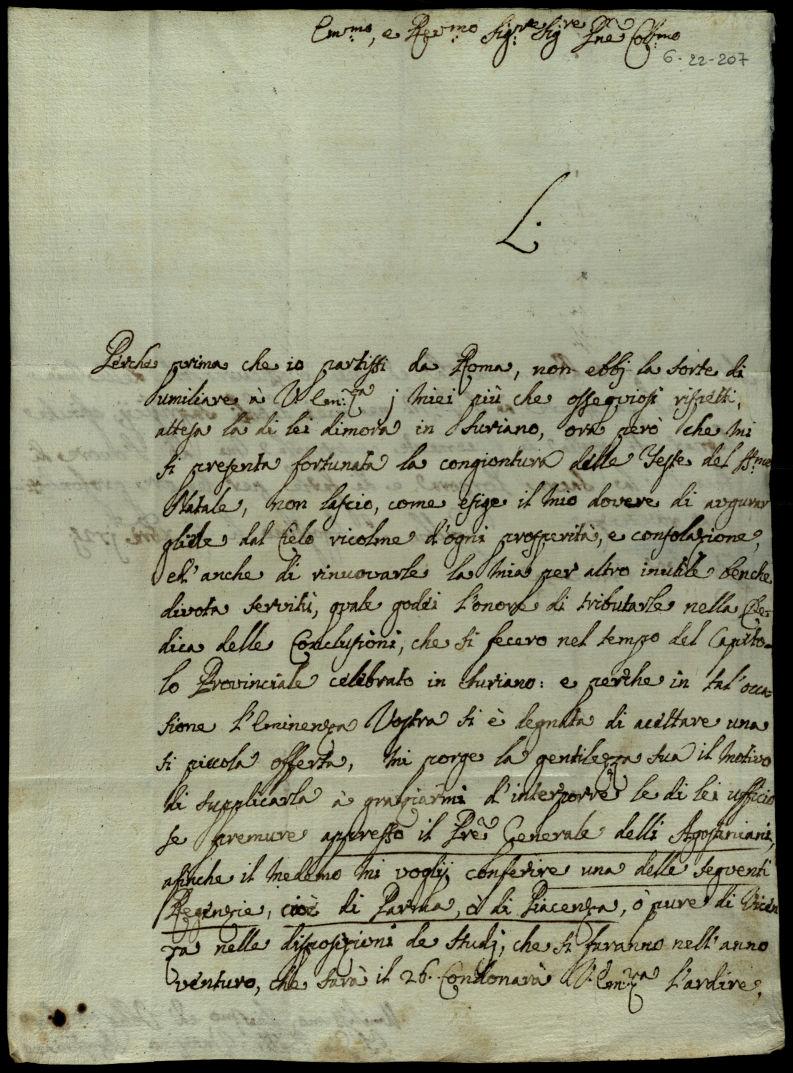 Em.mo, e Rev.mo Sig.re Sig.re Prne Col.mo
6-22-207
L.
Perche prima che io partissi da Roma, non ebbj la sorte di
humiliare à V. Em.za j miei più che ossequiosi rispetti,
attesa la di lei dimora in Suriano, ora però che mi
si presenta fortunata la congiontura delle Feste del SS.mo
Natale, non lascio, come esige il mio dovere di augurar
gliele dal Cielo ricolme d'ogni prosperità, e consolazione,
ed'anche di rinuovarle la mia per altro inutile benche
divota servitù, quale godei l'onore di tributarle nella De-
dica delle Conclusioni, che si fecero nel tempo del Capito-
lo Provinciale celebrato in Suriano: e perche in tal'occa-
sione l'Eminenza Vostra si è degnata di accettare una
si piccola offerta, mi porge la gentilezza sua il motivo
di supplicarla à graziarmi d'interporre le di lei ufficio
se premure appresso il Pre Generale delli Agostiniani,
afinche il medemo mi voglij conferire una delle seguenti
Regenzie, cioè di Parma, ò di Piacenza, ò pure di Vicen
za nelle disposizioni de Studj, che si faranno nell'anno
venturo, che sarà il 26. Condonarà V. Em.za l'ardire,